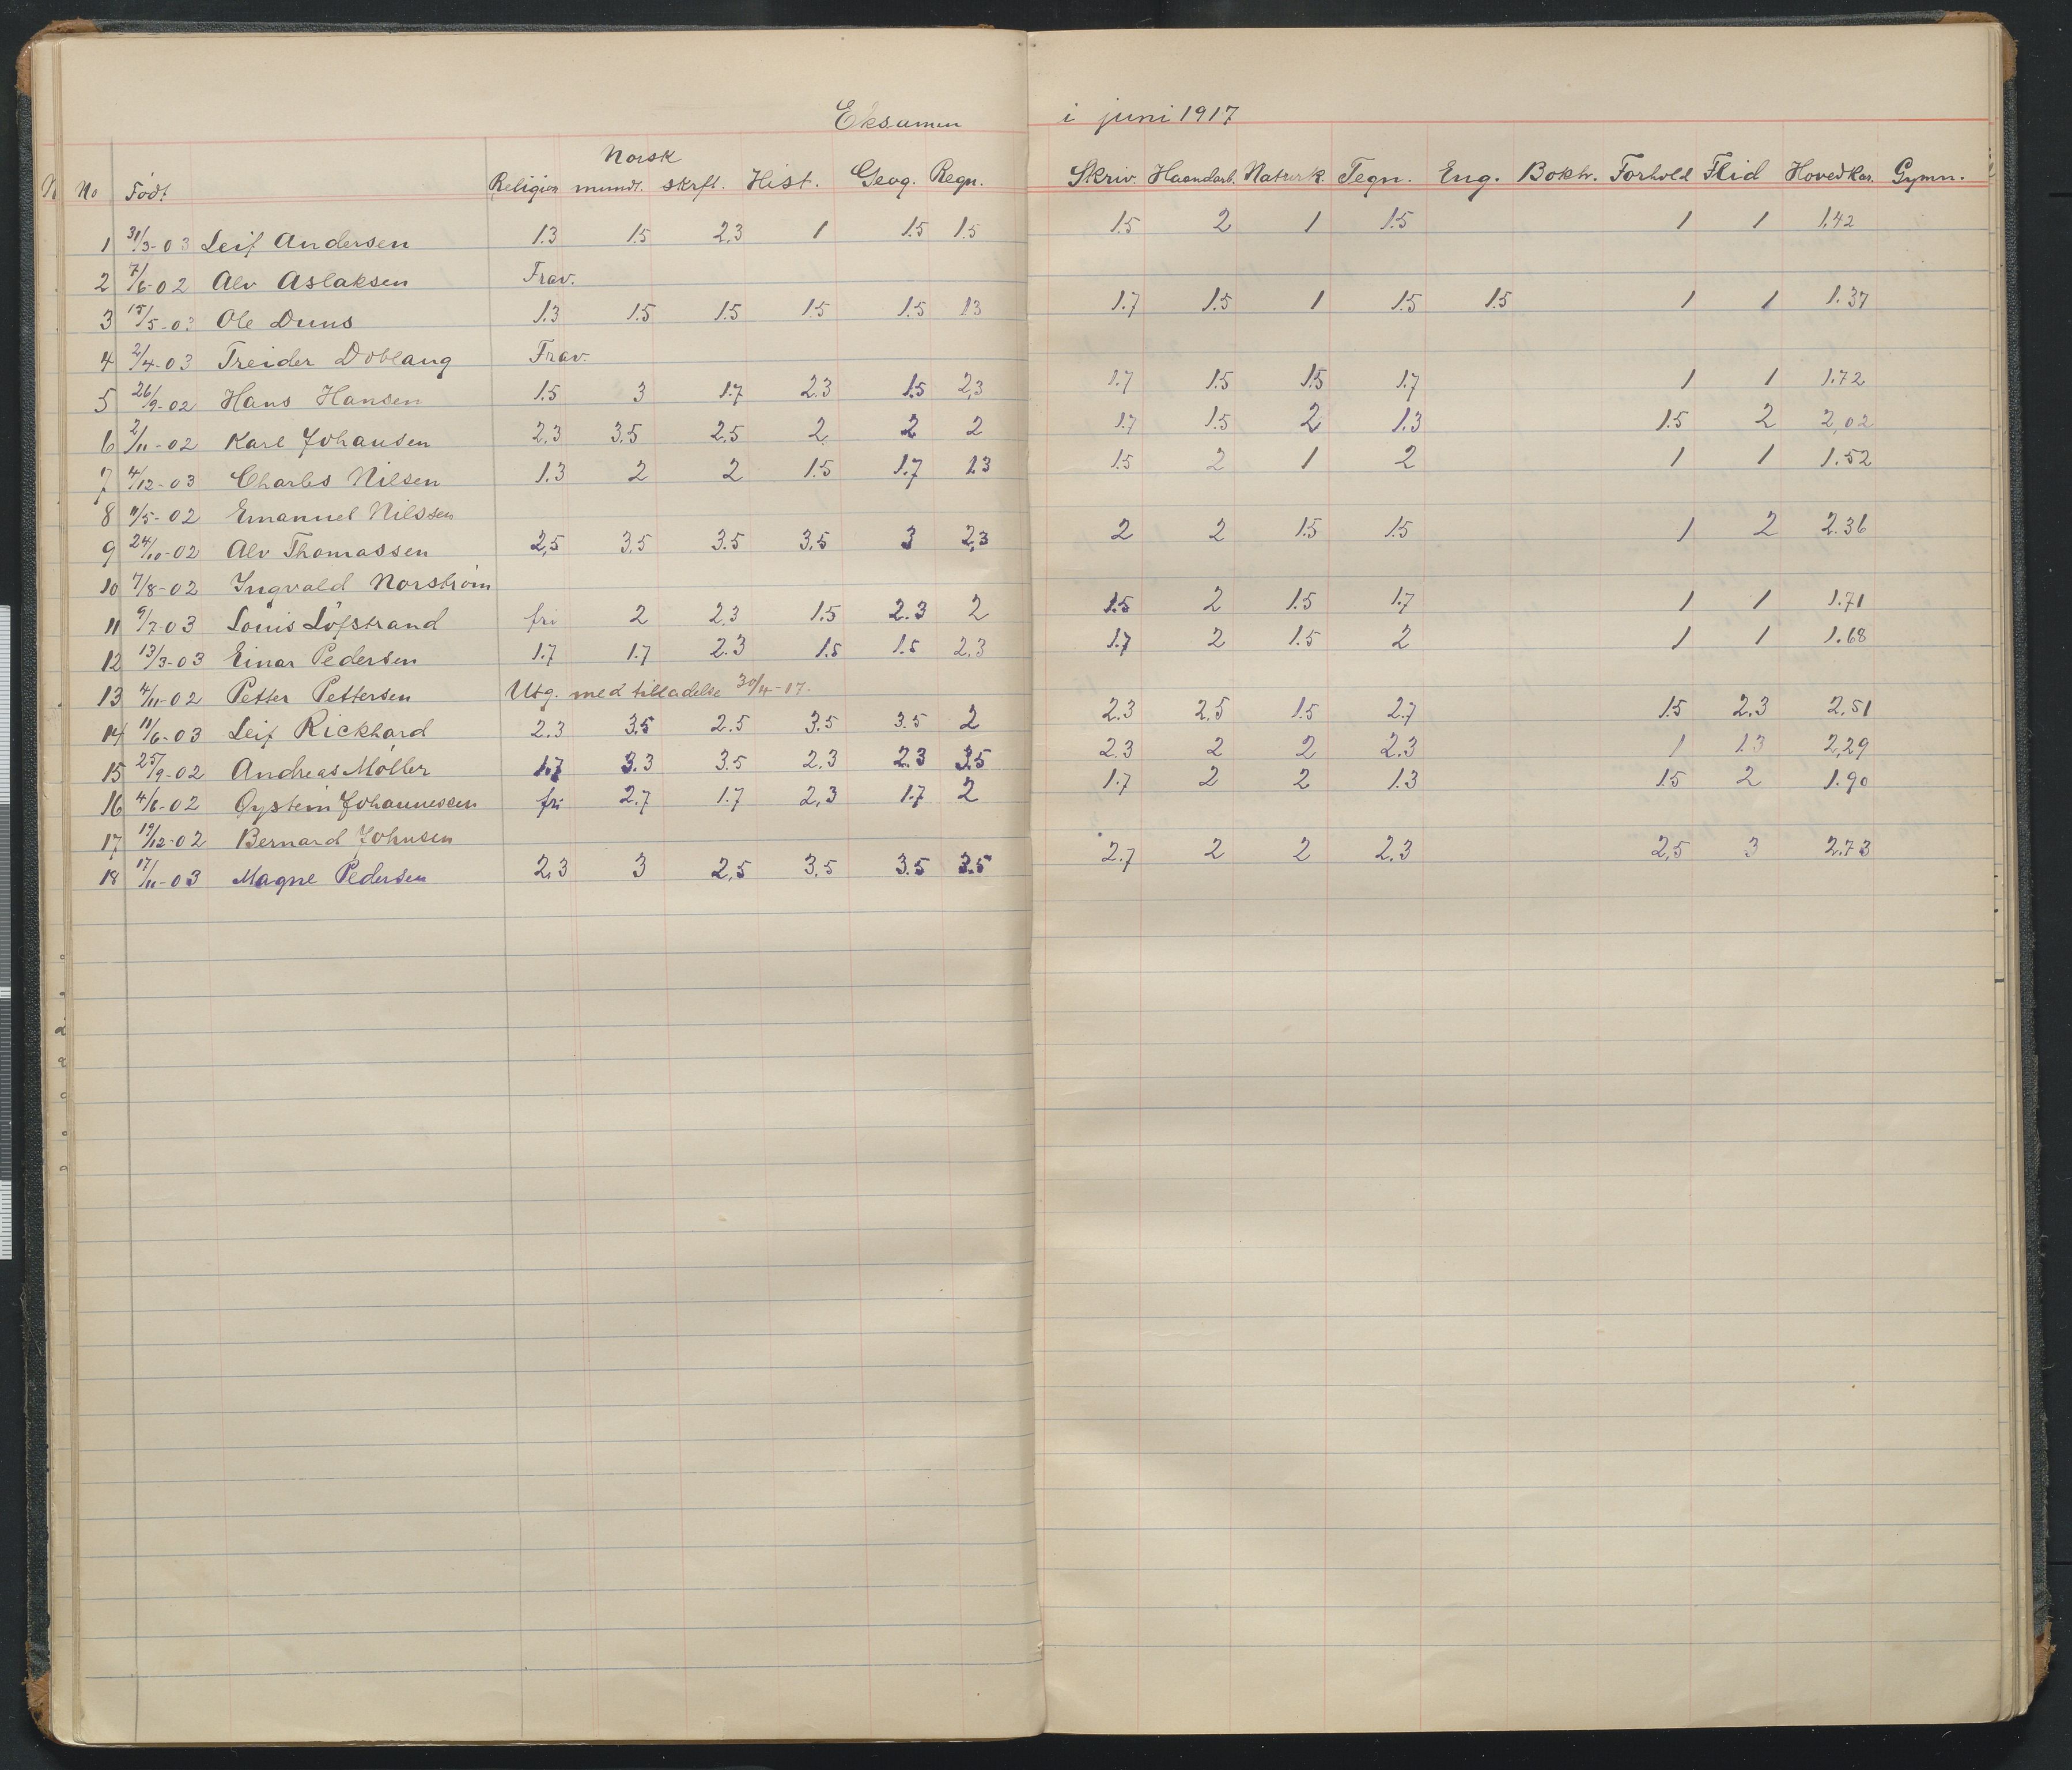 Eksamen i juni 1917
Norsk
No Født Religion mundt. skrftl. Hist. Geog. Regn. Skriv. Haandarb. Naturk. Tegn. Eng. Bokh. Forhold Flid Hovedkar. Gymn.
1 31/3-03 Leif Andersen 1.3 1.5 2.3 1 1.5 1.5 1.5 2 1 1.5 1 1 1,42
2 7/6-02 Alv Aslaksen Frav.
3 15/5-03 Ole Duns 1.3 1.5 1.5 1.5 1.5 1.3 1.7 1.5 1 1.5 1.5 1 1 1.37
4 2/4-03 Treider Doblaug Frav.
5 26/9-02 Hans Hansen 1.5 3 1.7 2.3 1.5 2,3 1.7 1.5 1.5 1.7 1 1 1.72
6 2/11-02 Karl Johansen 2.3 3.5 2.5 2 2 2 1.7 1.5 2 1.3 1.5 2 2,02
7 4/12-03 Charles Nilsen 1.3 2 2 1.5 1.7 1.3 1.5 2 1 2 1 1 1.52
8 11/5-02 Emanuel Nilssen
9 24/10-02 Alv Thomassen 2,5 3.5 3.5 3.5 3 2,3 2 2 1.5 1.5 1 2 2.36
10 7/8-02 Ingvald Norstrøm
11 9/7-03 Louis Löfstrand fri 2 2.3 1.5 2.3 2 1.5 2 1.5 1.7 1 1 1.71
12 13/3-03 Einar Pedersen 1.7 1.7 2.3 1.5 1.5 2,3 1.7 2 1.5 2 1 1 1.68
13 4/11-02 Petter Pettersen Utg. med tilladelse 30/4-17.
14 11/6-03 Leif Rickhard 2.3 3.5 2.5 3.5 3.5 2 2.3 2,5 1.5 2.7 1.5 2.3 2,51
15 25/9-02 Andreas Møller 1.7 3.3 3.5 2.3 2.3 3.5 2.3 2 2 2.3 1 1.3 2,29
16 4/6-02 Øystein Johannessen fri 2.7 1.7 2,3 1.7 2 1.7 2 2 1.3 1.5 2 1.90
17 19/12-02 Bernard Johnsen
18 17/11-03 Magne Pedersen 2,3 3 2,5 3.5 3.5 3.5 2.7 2 2 2.3 2,5 3 2.73